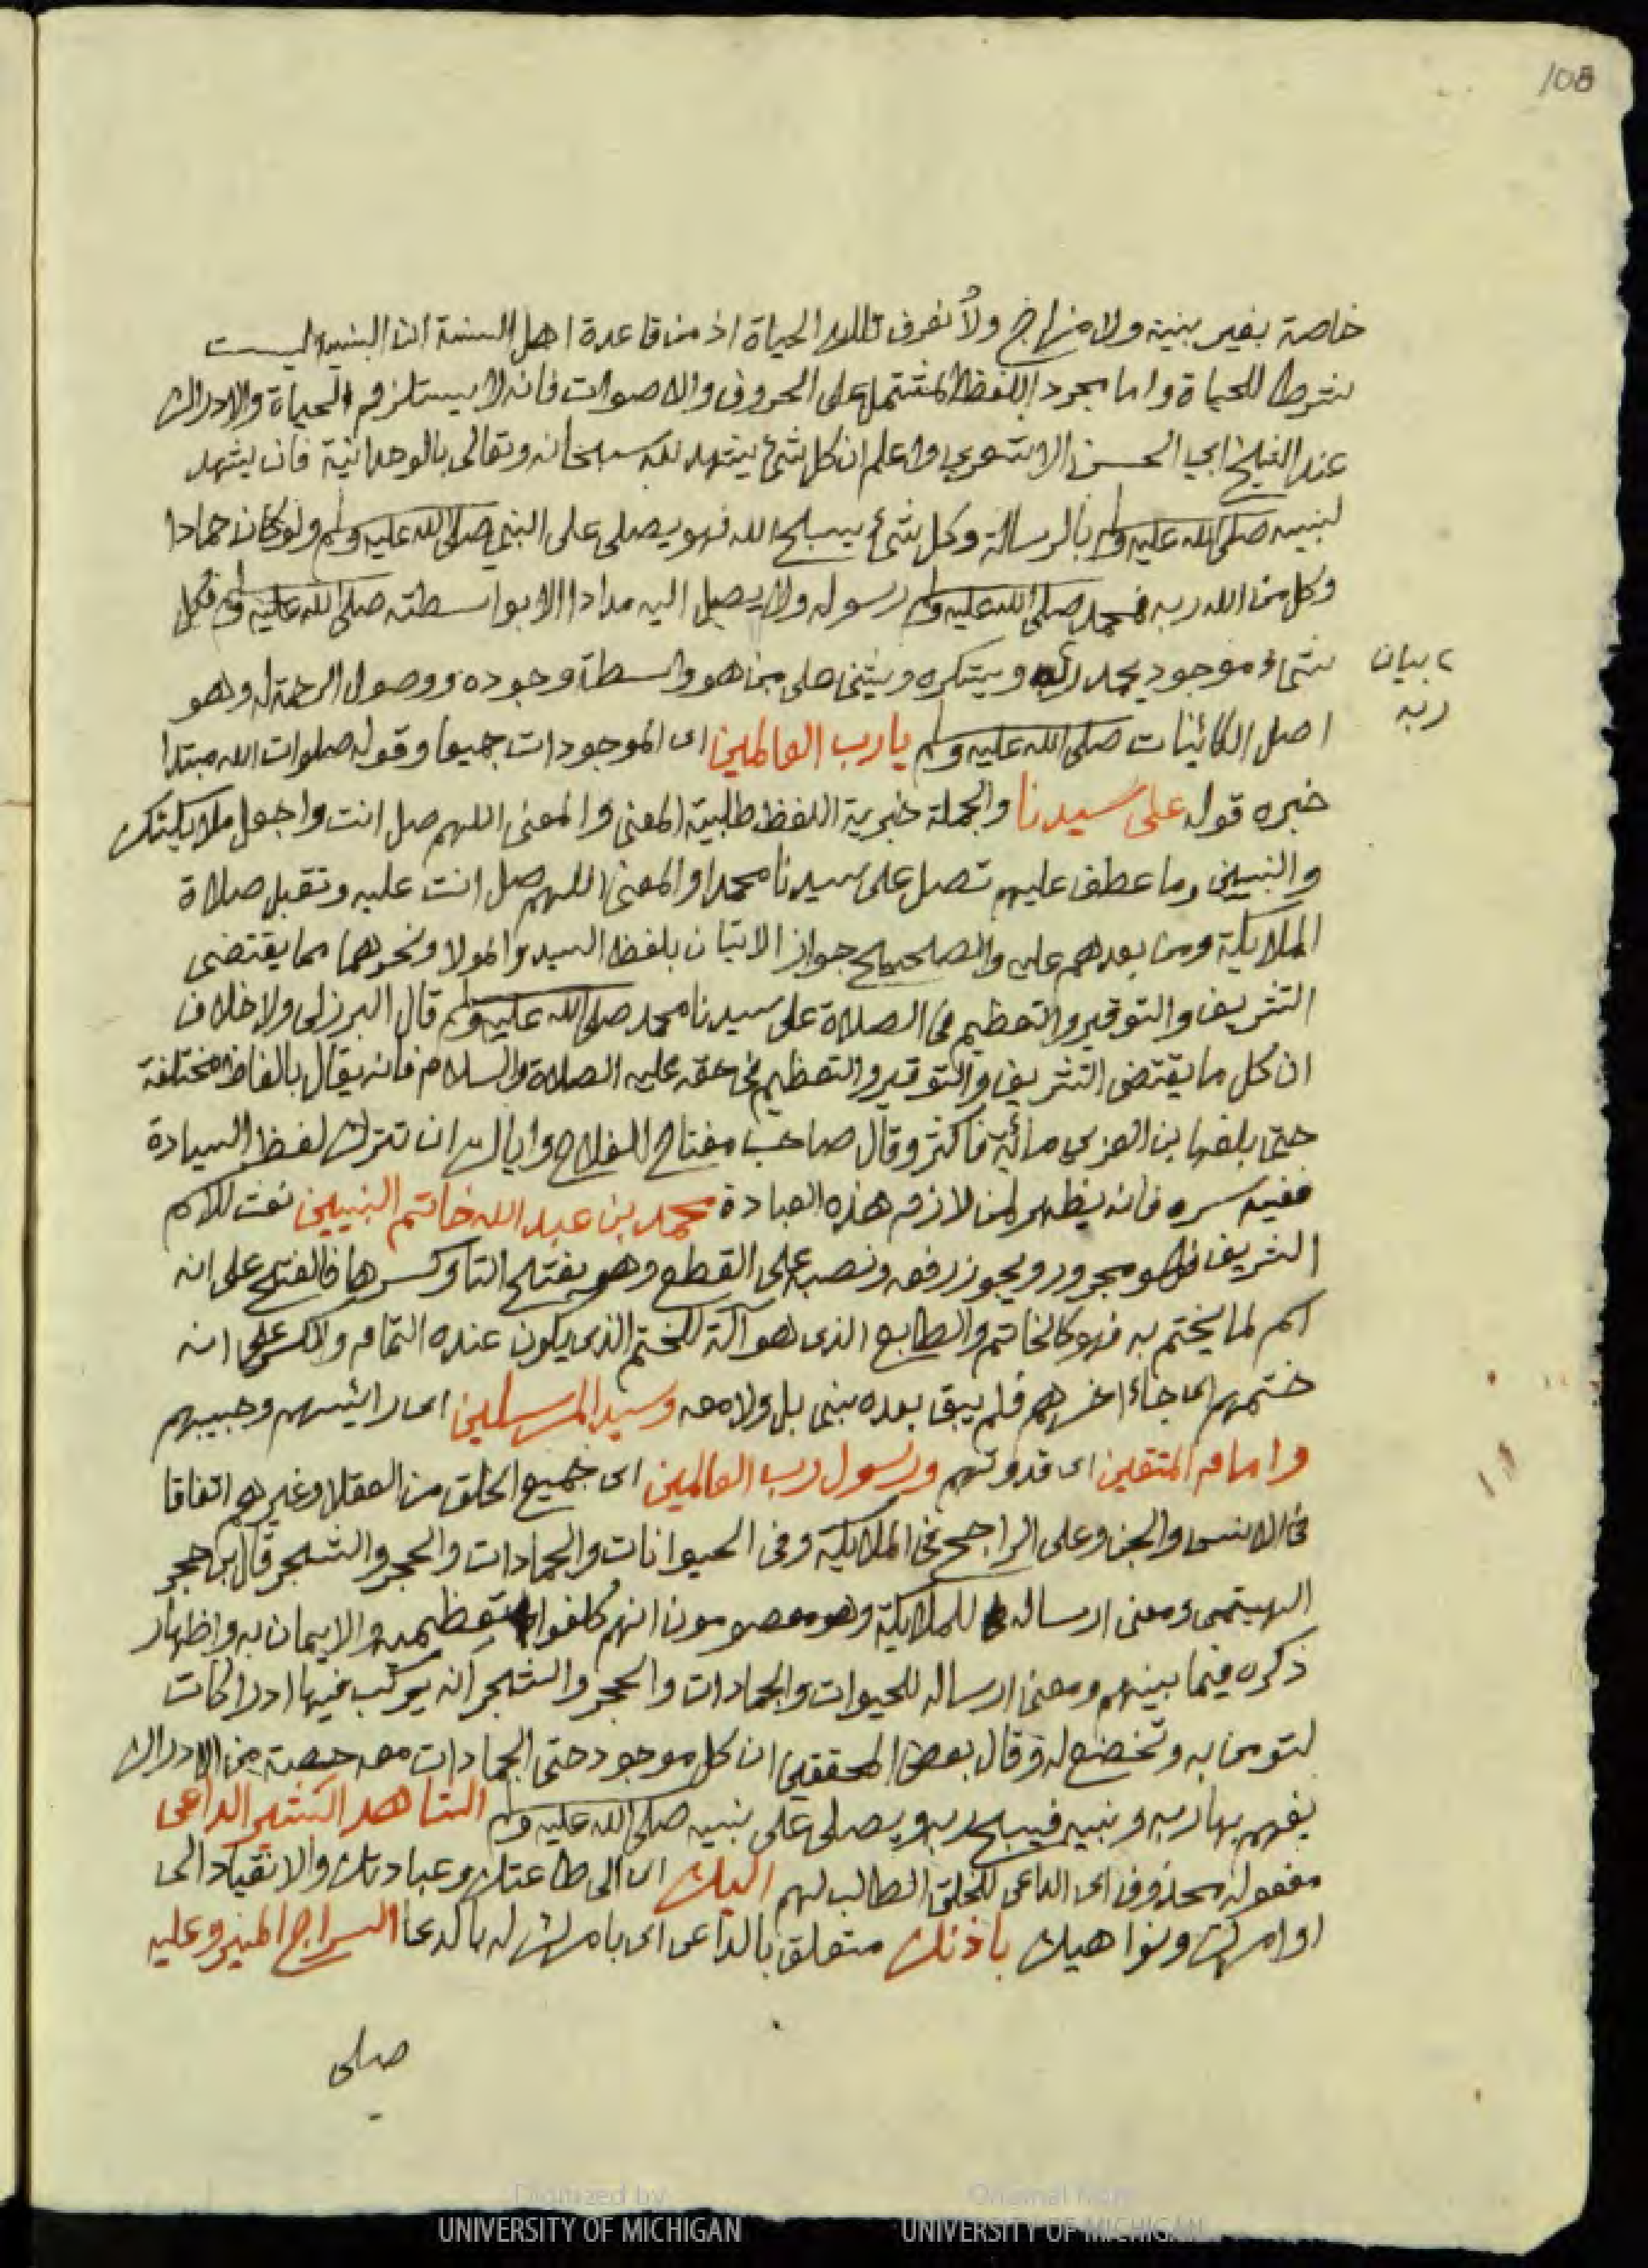 108
خاصة بغير بنية ولا مزاج ولا نعرف تلك الحياة اذ من قاعدة اهل السنة ان البنية ليست
شرطا للحياة واما مجرد اللفظ المشتمل على الحروف والاصوات فانه لا يستلزم الحياة والادراك
عند الشيخ ابي الحسن الاشعري واعلم ان كل شئ يشهد لله سبحانه وتعالى بالوحدانية فانه يشهد
لنبيه صلى الله عليه وسلم بالرسالة وكل شئ يسبح الله فهو يصلى على النبي صلى الله عليه وسلم ولو كان جمادا
وكل من الله ربه فمحمد صلى الله عليه وسلم رسوله ولا يصل اليه مدادا الا بواسطته صلى الله عليه وسلم فكل
شئ موجود يحمد ربه ويشكره ويثنى على من هو واسطة وجوده ووصول الرحمة له وهو
بيان
ربه
اصل الكائنات صلى الله عليه وسلم يارب العالمين اى الموجودات جميعا وقوله صلوات الله مبتدا
خبره قوله على سيدنا والجملة خبرية اللفظ طلبية المعنى والمعنى اللهم صل انت واجعل ملايكتك
والنبيين وما عطف عليهم تصل على سيدنا محمد او المعنى اللهم صل انت عليه وتقبل صلاة
الملايكة ومن بعدهم عليه والصحيح جواز الاتيان بلفظ السيد والمولا ونحوهما مما يقتضى
التشريف والتوقير والتعظيم فى الصلاة على سيدنا محمد صلى الله عليه وسلم قال البرزلى ولا خلاف
ان كل ما يقتضى التشريف والتوقير والتعظيم فى حقه عليه الصلاة والسلام فانه يقال بالفاظ مختلفة
حتى بلغها ابن العربى مائة فاكثر وقال صاحب مفتاح الفلاح واياك ان تترك لفظ السيادة
ففيه سره فانه يظهر لمن لازم هذه العبادة محمد بن عبد الله خاتم النبيين نعت للاسم
الشريف فهو مجرور ويجوز رفعه ونصبه على القطع وهو بفتح التا وكسرها فالفتح على انه
اسم لما يختم به فهو كالخاتم والطابع الذى هو آلة للختم الذى يكون عنده التمام والكسر على انه
ختمهم اى جاء اخرهم فلم يبق بعده نبى بل ولا معه وسيد المرسلين اى رائيسهم وحبيبهم
وامام المتقين اى قدوتهم ورسول رب العالمين اى جميع الخلق من العقلا وغيرهم اتفاقا
فى الانس والجن وعلى الراجح فى الملايكة وفى الحيوانات والجمادات والحجر والشجر قال ابن حجر
الهيتمى ومعنى ارساله للملايكة وهم معصومون انهم كلفوا بتعظيمه والايمان به واظهار
ذكره فيما بينهم ومعنى ارساله للحيوات والجمادات والحجر والشجر انه يركب فيها ادراكات
لتومن به وتخضع له وقال بعض المحققين ان كل موجود حتى الجمادات معه حصة من الادراك
يفهم بها ربه ونبيه فيسبح ربه ويصلى على نبيه صلى الله عليه وسلم الشاهد البشير الداعى
مفعوله محذوف اى الداعى للخلق الطالب لهم اليك اى الى طاعتك وعبادتك والانقياد الى
اوامرك ونواهيك باذنك متعلق بالداعى اى بامرك له بالدعا السراج المنير وعليه
صلى
Digitized by
UNIVERSITY OF MICHIGAN
Original from
UNIVERSITY OF MICHIGAN